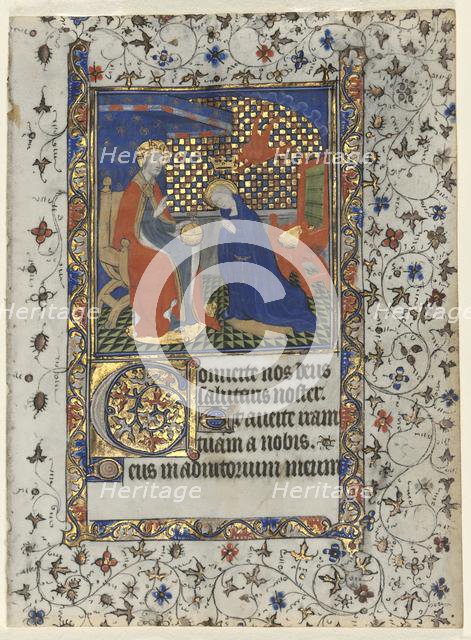 Heritage Heritage
Heritage Heritage Heritage
Conuerte nos deus
salutaris noster.
Et auerte iram
tuam a nobis.
Deus in adiutorium meum
Heritage Heritage
Heritage Heritage